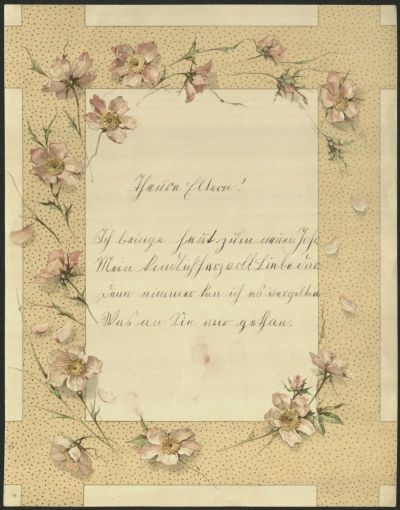 Theure Eltern!
Ich bringe heut zum neuen Jahr
Mein kindlich Herz voll Liebe dar
Denn nimmer kan ich es vergelten
Was an Sie mir gethan.